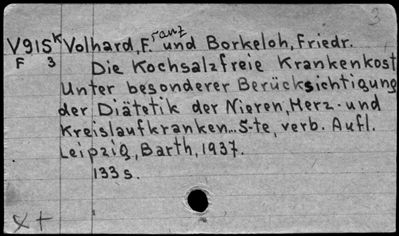 3
V91S K Volhard, F.ranz und Borkeloh, Friedr.
F 3 Die Kochsalzfreie Krankenkost
unter besonderer Berücksichtigung
der Diätetik der Nieren, Herz- und
Kreislaufkranken... 5-te, verb. Aufl.
Leipzig, Barth, 1937.
133 s.
x +